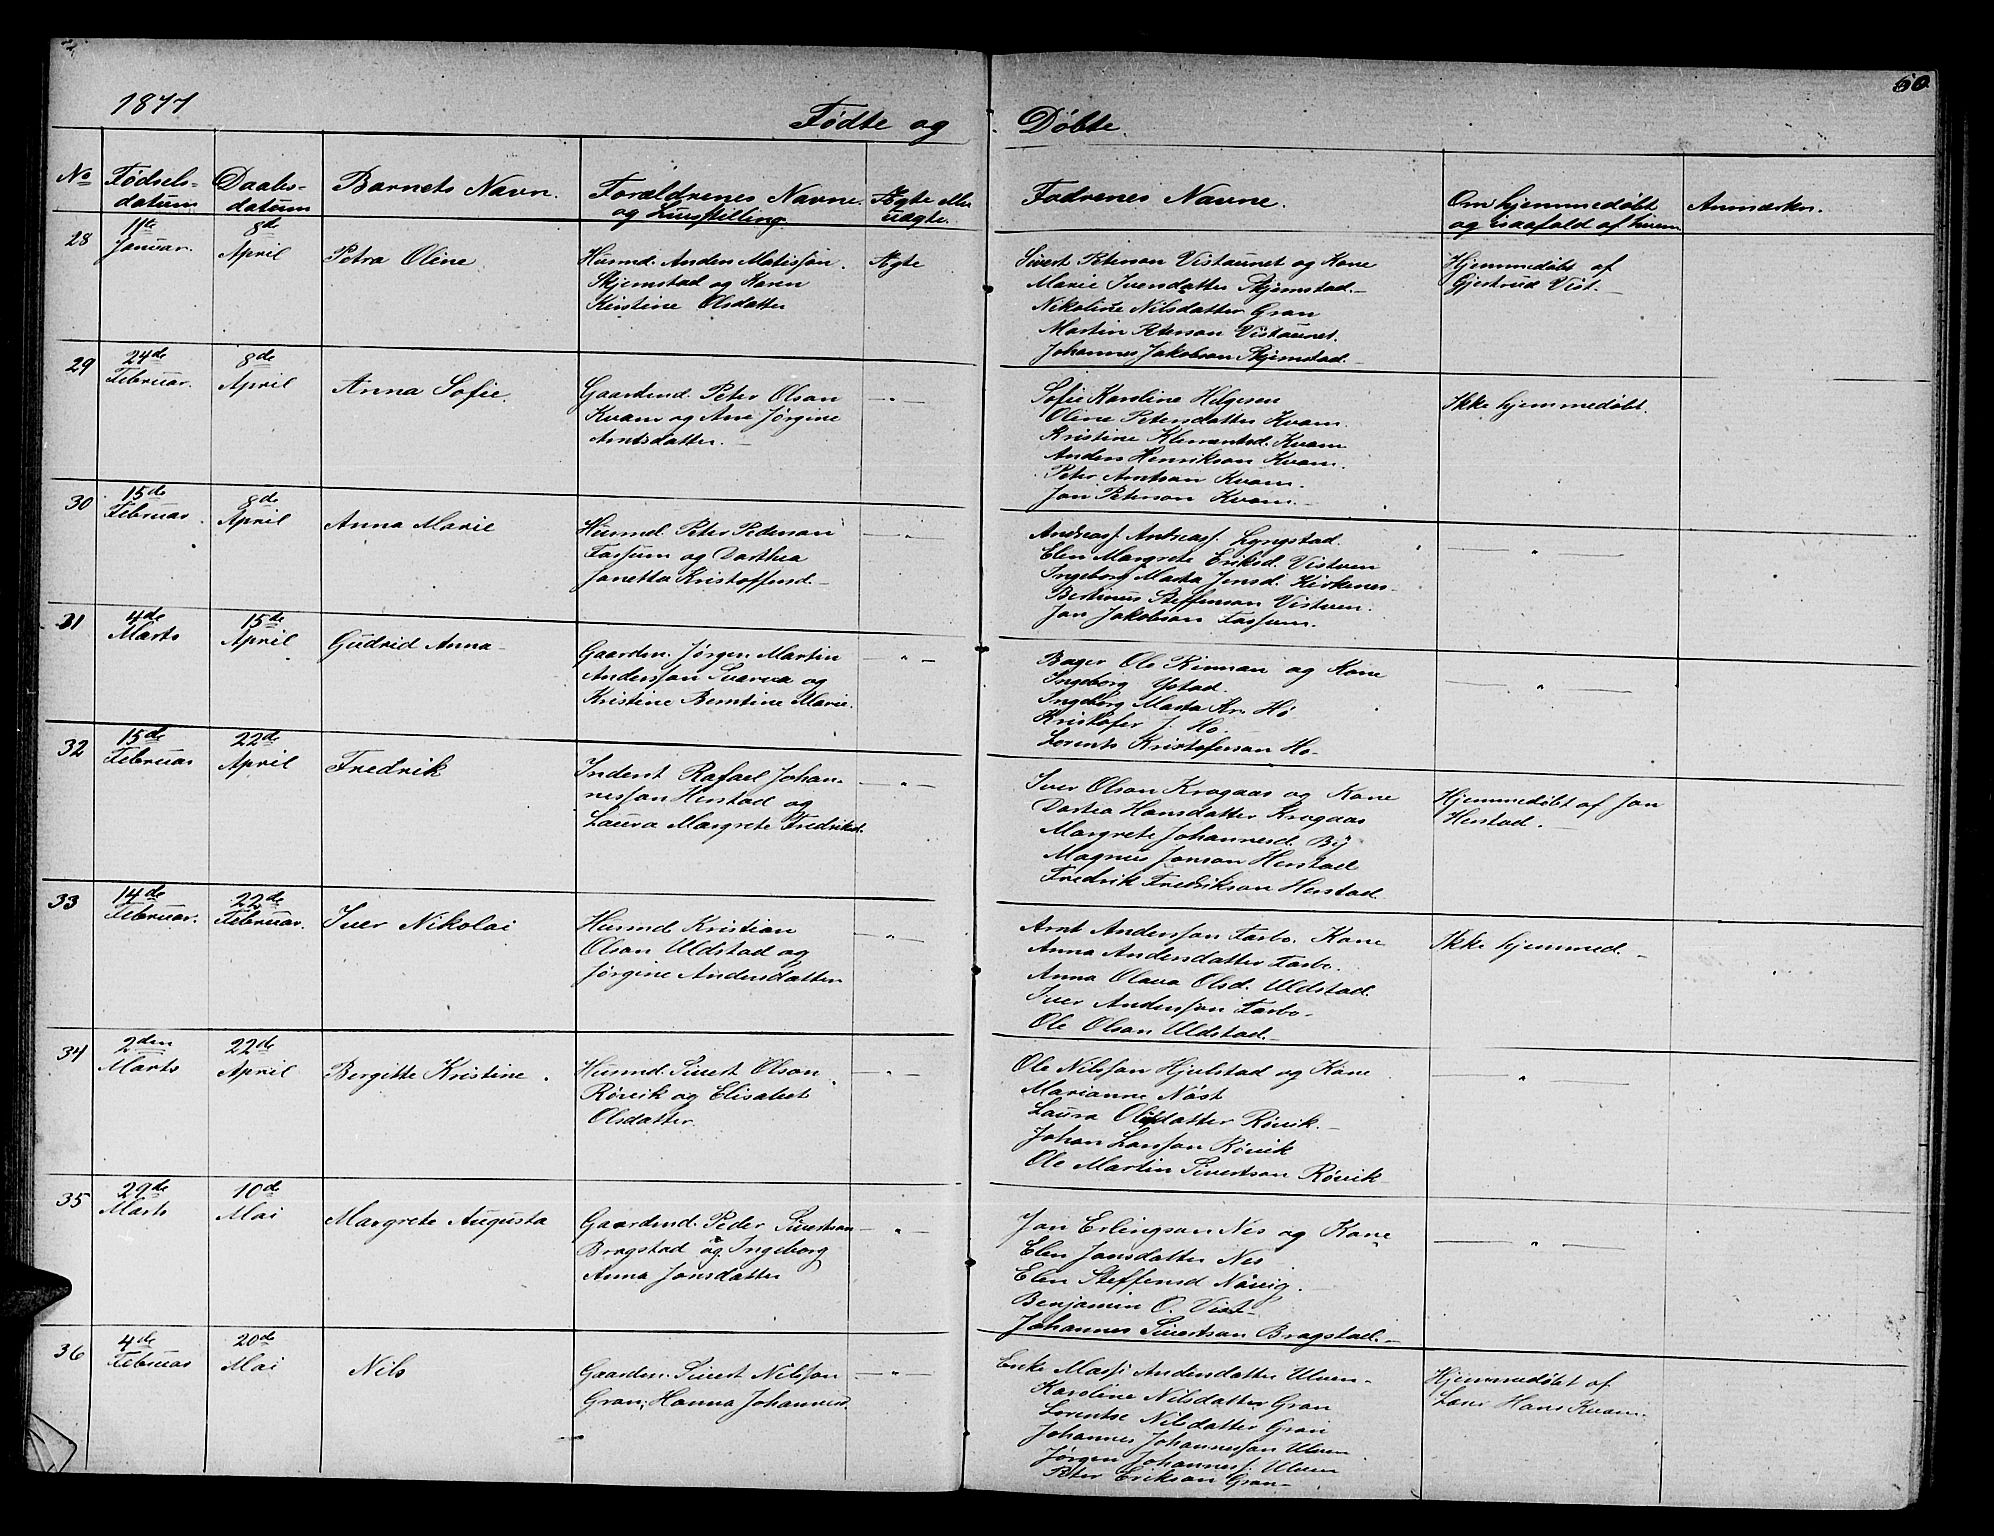 60
1877
Fødte og Døbte.
No
Fødsels-
datum
Daabs-
datum
Barnets Navn.
Forældrenes Navne
og Livsstilling
Ægte eller
uægte.
Fadrenes Navne.
Om hjemmedøbt
og isaafald af hvem
Anmærkn.
28
11te
Januar.
8de
April
Petra Oline
Husmd. Anders Matisson
Skjemstad og Karen
Kristine Olsdatter
Ægte
Sivert Peterson Vistaunet og Kone
Marie Iversdatter Skjemstad.
Nikoline Nilsdatter Gran
Martin Peterson Vistaunet.
Johannes Jakobson Skjemstad.
Hjemmedøbt af
Gjertrud Vist.
29
24de
Februar.
8de
April
Anna Sofie.
Gaardmd. Peter Olson
Kvam og Ane Jørgine
Arntsdatter.
— " —
Sofie Karoline Helgesen
Oline Petersdatter Kvam.
Kristine Klemetsd. Kvam
Anders Henrikson Kvam.
Peter Arntson Kvam.
Jon Peterson Kvam.
Ikke hjemmedøbt.
30
15de
Februar.
8de
April
Anna Marie
Husmd. Peter Pederson
Fossum og Dorthea
Janetta Kristoffersd.
— " —
Andreas Andreass. Lyngstad.
Elen Margrete Eriksd. Vistven
Ingeborg Marta Jensd. Kirkenes.
Bertinus Steffenson Vistven.
Jon Jakobson Fossum.
— " —
31
4de
Marts
15de
April
Gudrid Anna
Gaardm. Jørgen Martin
Andersson Svarva og
Kristine Berntine Marie.
— " —
Bager Ole Rinnan og Kone
Ingeborg Ystad.
Ingeborg Marta Kr. Hø
Kristofer J. Hø.
Lorents Kristoferson Hø.
— " —
32
15de
Februar
22de
April
Fredrik
Inderst Rafael Johan-
nesson Herstad og
Laura Margrete Fredriksd.
— " —
Iver Olson Krogaas og Kone
Dortea Hansdatter Krogaas
Margrete Johannesd. By
Magnus Jonson Herstad
Fredrik Fredrikson Herstad.
Hjemmedøbt af Jon
Herstad.
33
14de
Februar.
22de
Februar.
Iver Nikolai
Husmd Kristian
Olson Uldstad og
Jørgine Andersdatter
— " —
Arnt Andersson Farbo. Kone
Anna Andersdatter Farbo.
Anna Olava Olsd. Uldstad.
Iver Andersson Farbo.
Ole Olson Uldstad.
Ikke hjemmed.
34
2den
Marts
22de
April
Bergitte Kristine.
Husmd. Sivert Olson
Røvik og Elisabet
Olsdatter
— " —
Ole Nilsson Hjulstad og Kone
Marianne Nøst
Laura Olsdatter Røvik.
Johan Larsson Røvik
Ole Martin Sivertson Røvik
— " —
35
29de
Marts
10de
Mai
Margrete Augusta
Gaardmd. Peder Sivertson
Bragstad og Ingeborg
Anna Jonsdatter
— " —
Jon Erlingson Nes og Kone
Elen Jonsdatter Nes
Elen Steffensd Nøvig.
Benjamin O. Vist
Johannes Sivertson Bragstad.
— " —
36
4de
Februar
20de
Mai
Nils
Gaardm. Sivert Nilsson
Gran, Hanna Johannesd.
— " —
Enke Masji Andersdatter Ulven.
Karoline Nilsdatter Gran
Lorentse Nilsdatter Gran
Johannes Johannesson Ulven
Jørgen Johanness. Ulven
Peter Erikson Gran
Hjemmedøbt af
Hans Kvam.